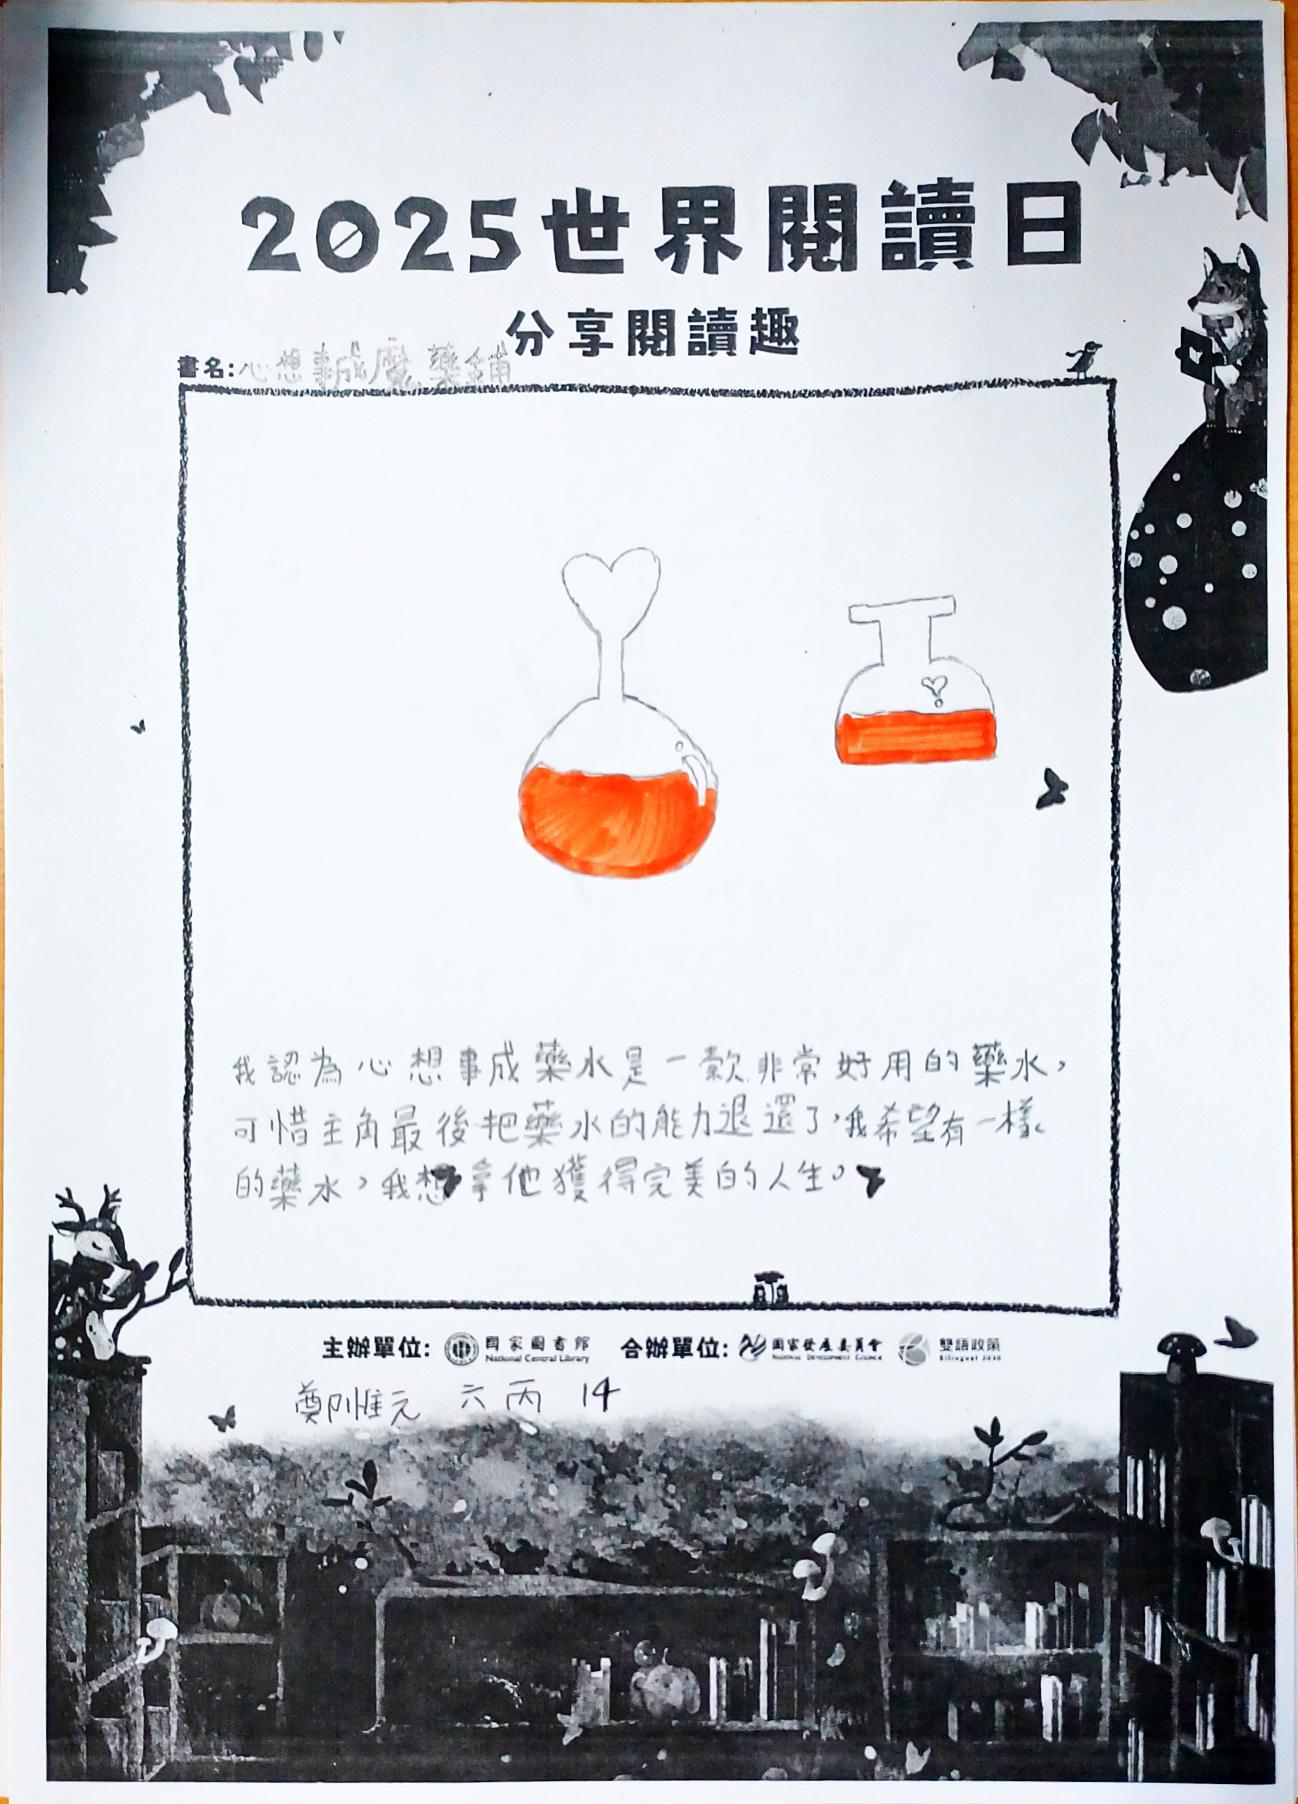 2025世界閱讀日
分享閱讀趣
書名:心想事誠魔藥鋪
我認為心想事成藥水是一款非常好用的藥水,
可惜主角最後把藥水的能力退還了,我希望有一樣
的藥水,我想拿他獲得完美的人生。
主辦單位: 國家圖書館 National Central Library 合辦單位: 國家發展委員會 NATIONAL DEVELOPMENT COUNCIL 雙語政策 Bilingual 2030
鄭惟元 六丙 14